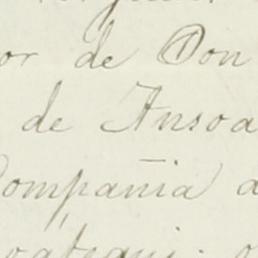 or de Don
de Ansoa
Compañia a